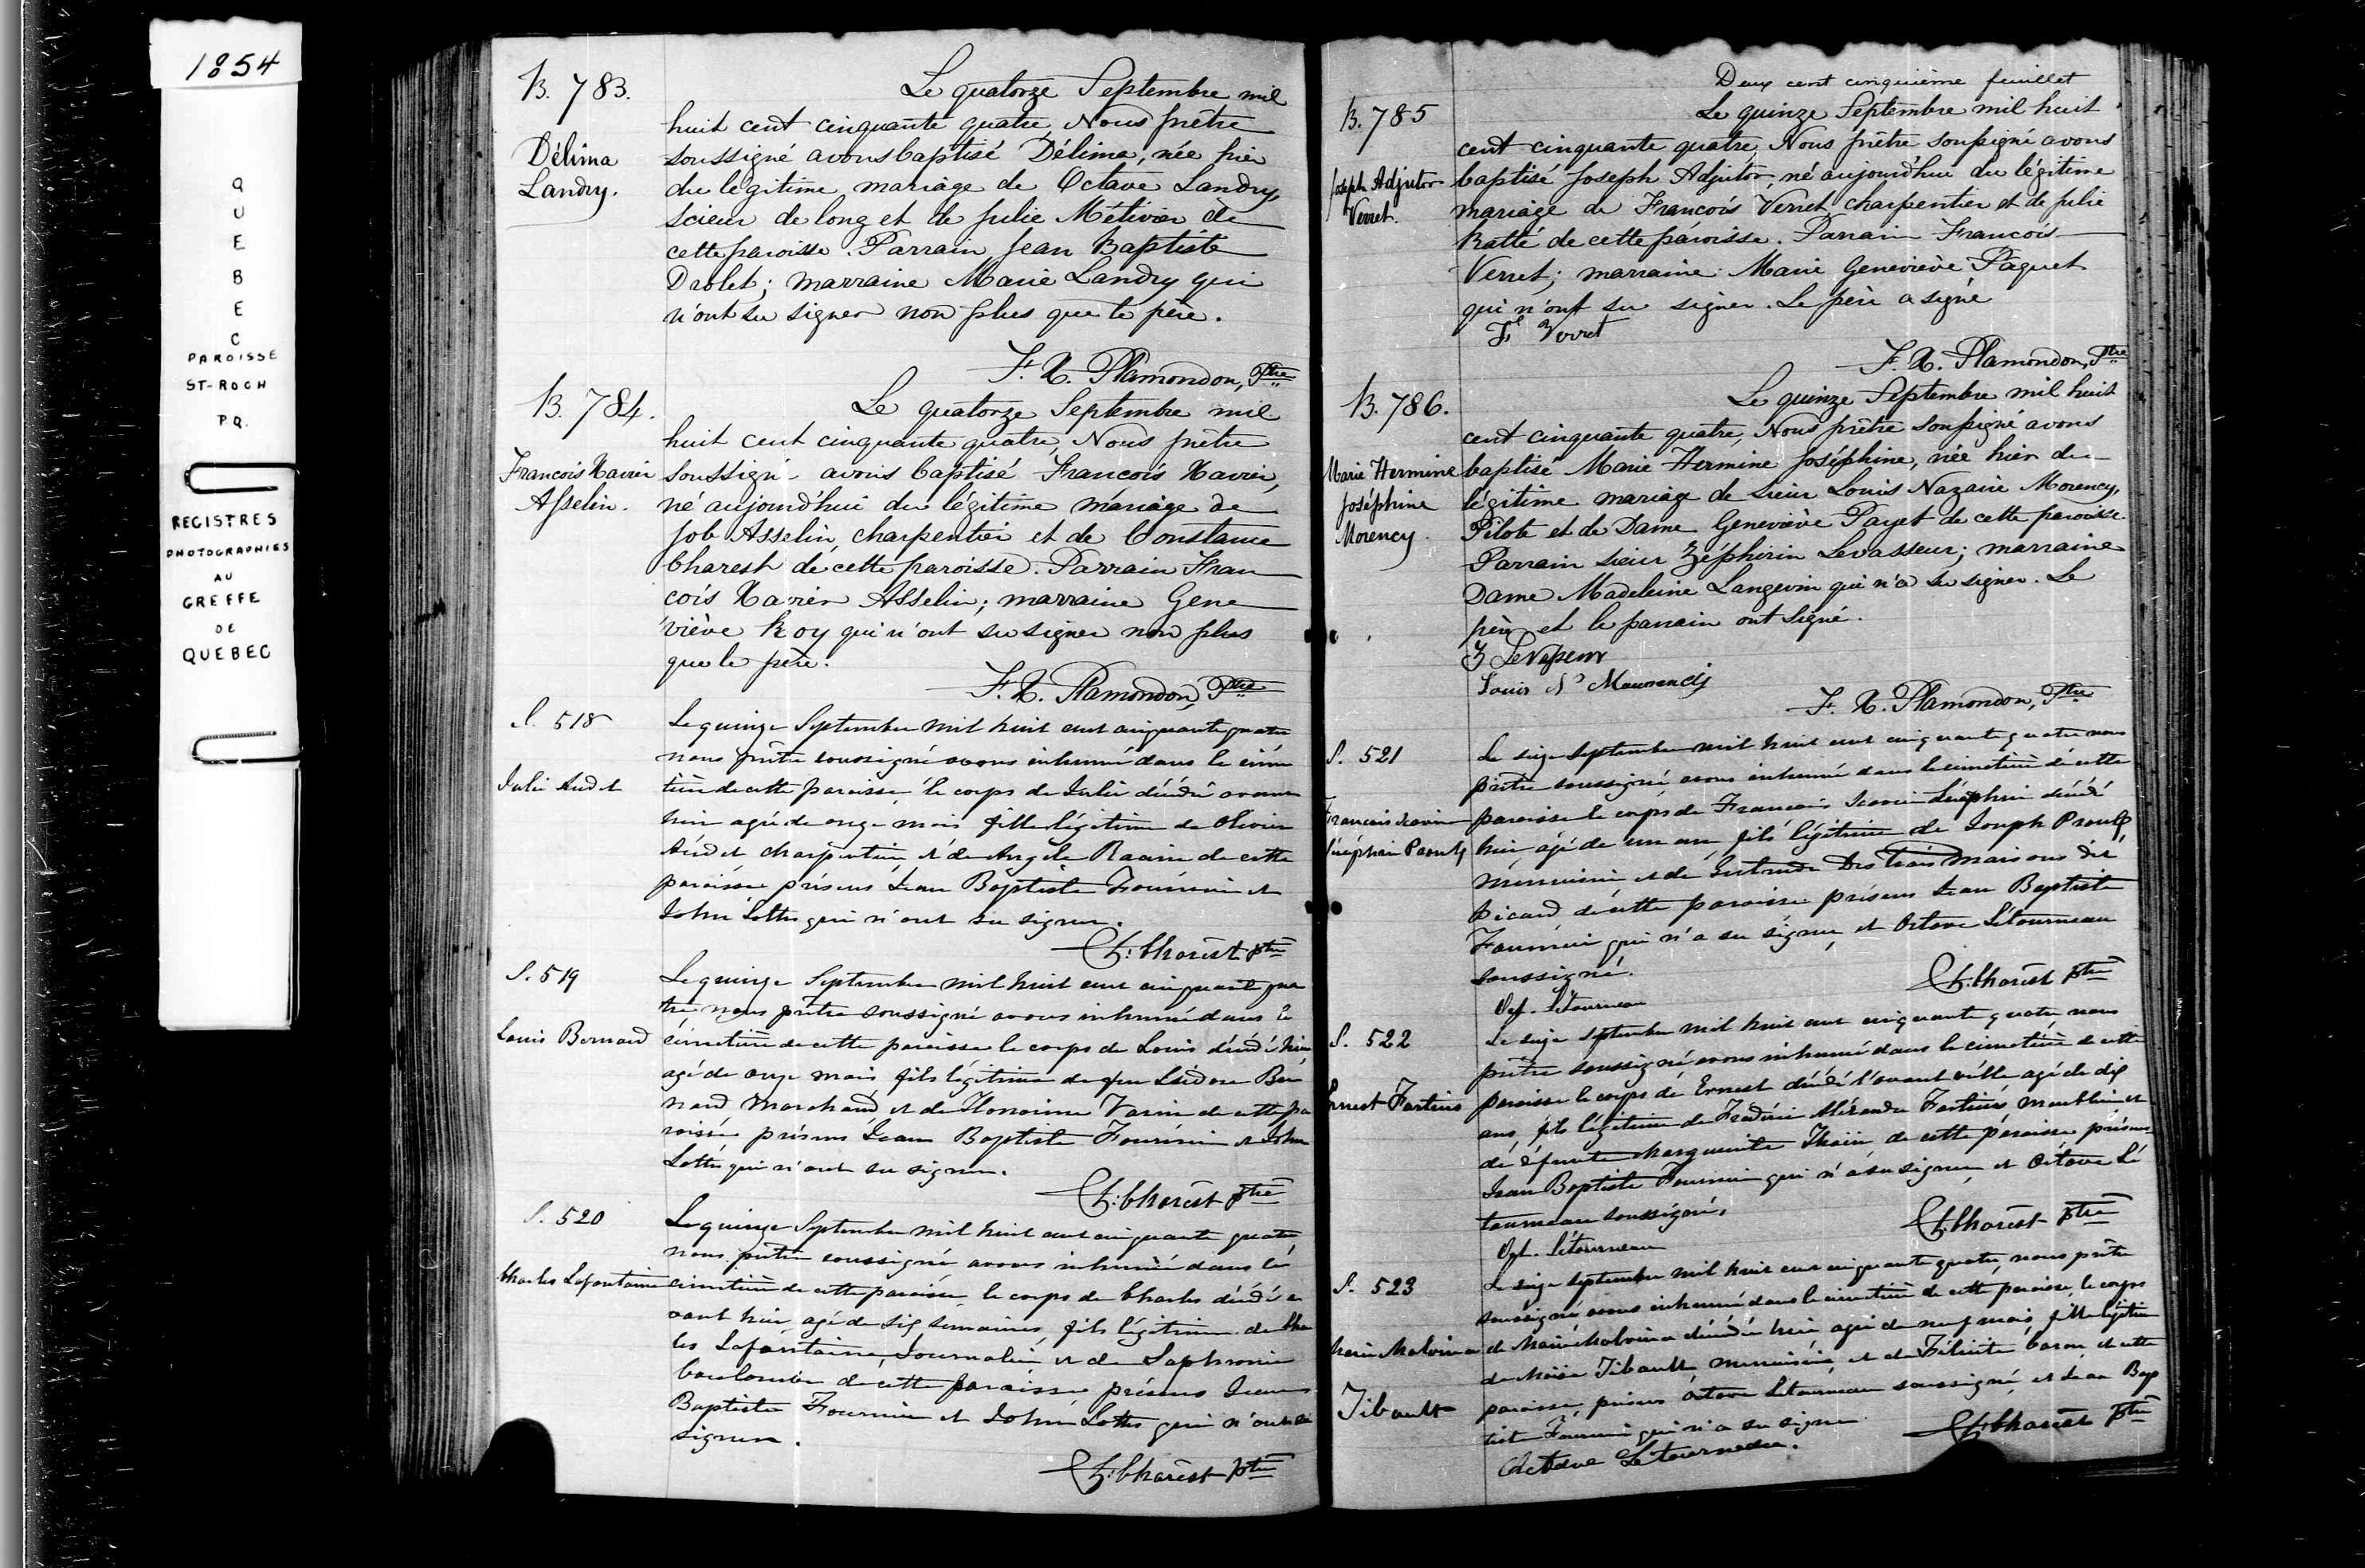 1854
Q
U
E
B
E
C
PAROISSE
ST-ROCH
P.Q.
REGISTRES
PHOTOGRAPHIES
AU
GREFFE
DE
QUEBEC
B. 783.
Délima
Landry.
Le quatorze Septembre mil
huit cent cinquante quatre, Nous prêtre
soussigné avons baptisé Délima, née hier
du légitime mariage de Octave Landry,
scieur de long et de Julie Métivier de
cette paroisse. Parrain Jean Baptiste
Drolet; marraine Marie Landry qui
n'ont su signer non plus que le père.
F. X. Plamondon, Ptre
B. 784.
François Xavier
Asselin.
Le quatorze Septembre mil
huit cent cinquante quatre, Nous prêtre
soussigné avons baptisé François Xavier,
né aujourd'hui du légitime mariage de
Job Asselin, charpentier et de Constance
Charest de cette paroisse. Parrain Fran
çois Xavier Asselin; marraine Gene
viève Roy qui n'ont su signer non plus
que le père.
F. X. Plamondon, Ptre
S. 518
Julie Audet
Le quinze Septembre mil huit cent cinquante quatre
nous prêtre soussigné avons inhumé dans le cime
tière de cette paroisse, le corps de Julie décédée avant
hier agée de onze mois fille légitime de Olivier
Audet charpentier et de Angèle Racine de cette
paroisse présens Jean Baptiste Fournier et
John Lotts qui n'ont su signer.
Z: Charest ptre
S. 519
Louis Bernard
Le quinze Septembre mil huit cent cinquante qua
tre nous prêtre soussigné avons inhumé dans le
cimetière de cette paroisse le corps de Louis décédé hier
agé de onze mois fils légitime de feu Isidore Ber
nard Marchand et de Honorine Varin de cette pa
roisse présens Jean Baptiste Fournier et John
Lotts qui n'ont su signer.
Z: Charest ptre
S. 520
Charles Lafontaine
Le quinze Septembre mil huit cent cinquante quatre
nous prêtre soussigné avons inhumé dans le
cimetière de cette paroisse, le corps de Charles décédé a
vant hier, agé de six semaines, fils légitime de Char
les Lafontaine, Journalier et de Sophronie
de cette paroisse présens Jean
Baptiste Fournier et John Lotts qui n'ont su
signer.
Z: Charest ptre
Deux cent cinquième feuillet
B. 785
Joseph Adjutor
Verret.
Le quinze Septembre mil huit
cent cinquante quatre, Nous prêtre soussigné avons
baptisé Joseph Adjutor, né aujourd'hui du légitime
mariage de François Verret, charpentier et de Julie
Ratté de cette paroisse. Parrain François
Verret; marraine Marie Geneviève Paquet
qui n'ont su signer. Le père a signé
Fs Verret
F. X. Plamondon, Ptre
B. 786.
Marie Hermine
Joséphine
Morency.
Le quinze Septembre mil huit
cent cinquante quatre, Nous prêtre soussigné avons
baptisé Marie Hermine Joséphine, née hier du
légitime mariage de Sieur Louis Nazaire Morency,
Pilote et de Dame Geneviève Payet de cette paroisse.
Parrain Sieur Zéphirin Levasseur; marraine
Dame Madeleine Langevin qui n'a su signer. Le
père et le parrain ont signé.
Z Levasseur
Louis N. Mourency
F. X. Plamondon, Ptre
S. 521
François Xavier
Séraphin Proulx
Le seize Septembre mil huit cent cinquante quatre nous
prêtre soussigné avons inhumé dans le cimetière de cette
paroisse le corps de François Xavier Séraphin décédé
hier agé de un an, fils légitime de Joseph Proulx,
menuisier et de Gertrude Des Trois Maisons dit
Picard de cette paroisse présens Jean Baptiste
Fournier qui n'a su signer et Octave Létourneau
soussigné.
Oct. Létourneau
Z: Charest ptre
S. 522
Ernest Fortier
Le seize Septembre mil huit cent cinquante quatre, nous
prêtre soussigné avons inhumé dans le cimetière de cette
paroisse le corps de Ernest décédé l'avant veille agé de dix
ans, fils légitime de Frédéric Alexandre Fortier, Meublier et
de défunte Marguerite de cette paroisse présens
Jean Baptiste Fournier qui n'a su signer, et Octave Lé
tourneau soussigné.
Oct. Létourneau
Z: Charest ptre
S. 523
Marie Malvina
Tibault
Le seize Septembre mil huit cent cinquante quatre, nous prêtre
soussigné avons inhumé dans le cimetière de cette paroisse, le corps
de Marie Malvina décédée hier agée de neuf mois, fille légitime
de Moise Tibault, menuisier, et de Félicité Caron, de cette
paroisse, présens Octave Létourneau soussigné, et Jean Bap
tiste Fournier qui n'a su signer.
Octave Létourneau.
Z: Charest ptre